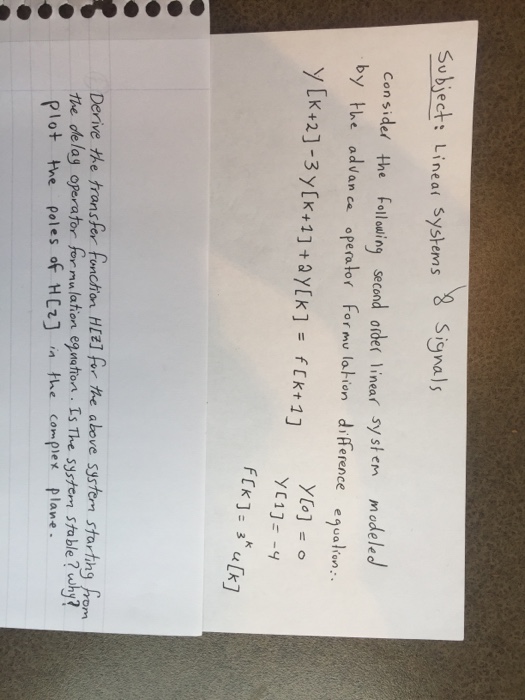 Subject: Linear Systems & Signals
Consider the following second order linear system modeled
by the advance operator formulation difference equation:.
Y[K+2]-3Y[K+1]+2Y[K] = f[K+1]
Y[0] = 0
Y[1] = -4
F[K] = 3^K u[K]
Derive the transfer function H[z] for the above system starting from
the delay operator formulation equation. Is The system stable? why?
plot the poles of H[z] in the complex plane.